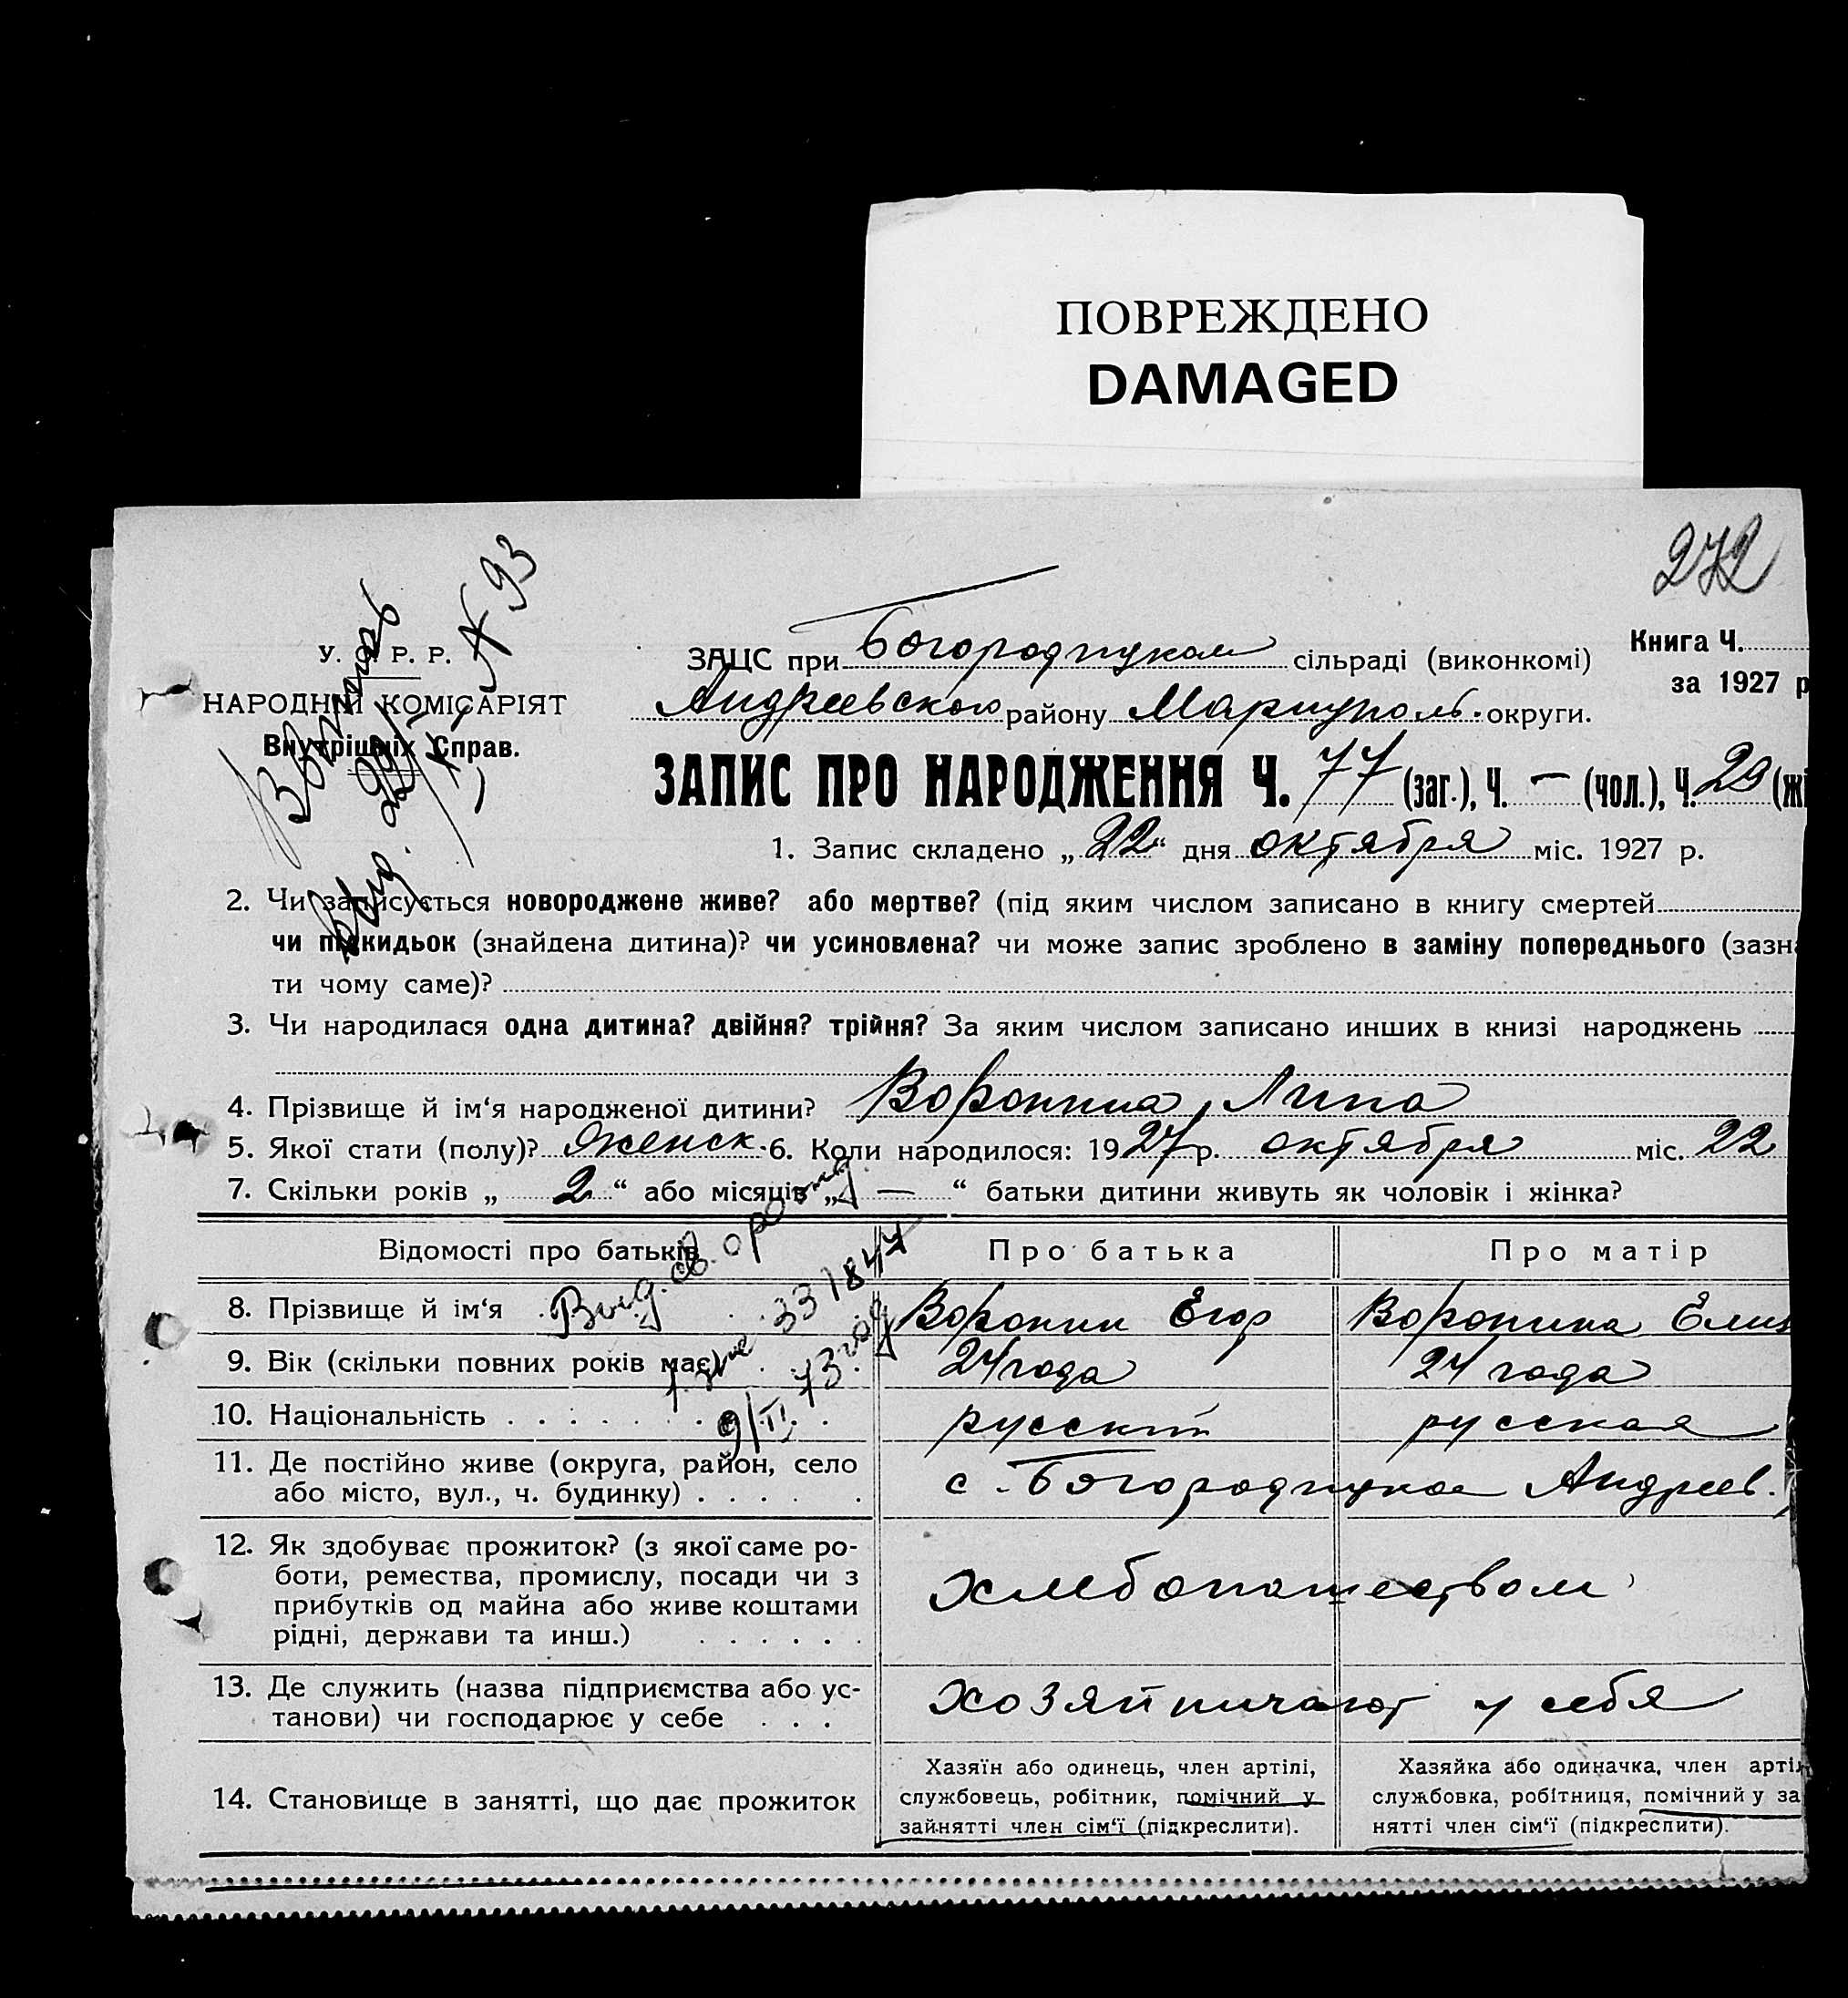 ПОВРЕЖДЕНО
DAMAGED
272
№ 93
У. С. Р. Р.
НАРОДНІЙ КОМІСАРІЯТ
Внутрішніх Справ.
ЗАЦС при Богородицком сільраді (виконкомі)
Книга Ч.
за 1927 р
Андреевского району Мариуполь. округи.
ЗАПИС ПРО НАРОДЖЕННЯ Ч. 77 (заг.), Ч. — (чол.), Ч. 29 (жі
1. Запис складено „22“ дня октября міс. 1927 р.
2. Чи записується новороджене живе? або мертве? (під яким числом записано в книгу смертей
чи підкидьок (знайдена дитина)? чи усиновлена? чи може запис зроблено в заміну попереднього (зазна
ти чому саме)?
3. Чи народилася одна дитина? двійня? трійня? За яким числом записано инших в книзі народжень
4. Прізвище й ім‘я народженої дитини? Воронина Лина
5. Якої стати (полу)? женск. 6. Коли народилося: 1927 р. октября міс. 22
7. Скільки років „2“ або місяців „—“ батьки дитини живуть як чоловік і жінка?
Відомості про батьків
Про батька
Про матір
Выд. св. о рожд.
33 1847
9/II. 73 год
8. Прізвище й ім‘я
Воронин Егор
Воронина Елиз
9. Вік (скільки повних років має)
24 года
24 года
10. Національність
русский
русская
11. Де постійно живе (округа, район, село
або місто, вул., ч. будинку)
с. Богородицкое Андреев.
12. Як здобуває прожиток? (з якої саме ро-
боти, ремества, промислу, посади чи з
прибутків од майна або живе коштами
рідні, держави та инш.)
хлебопашеством
13. Де служить (назва підприємства або ус-
танови) чи господарює у себе
хозяйничают у себя
14. Становище в занятті, що дає прожиток
Хазяїн або одинець, член артілі,
службовець, робітник, помічний у
зайнятті член сім‘ї (підкреслити).
Хазяйка або одиначка, член артіл
службовка, робітниця, помічний у за
нятті член сім‘ї (підкреслити).